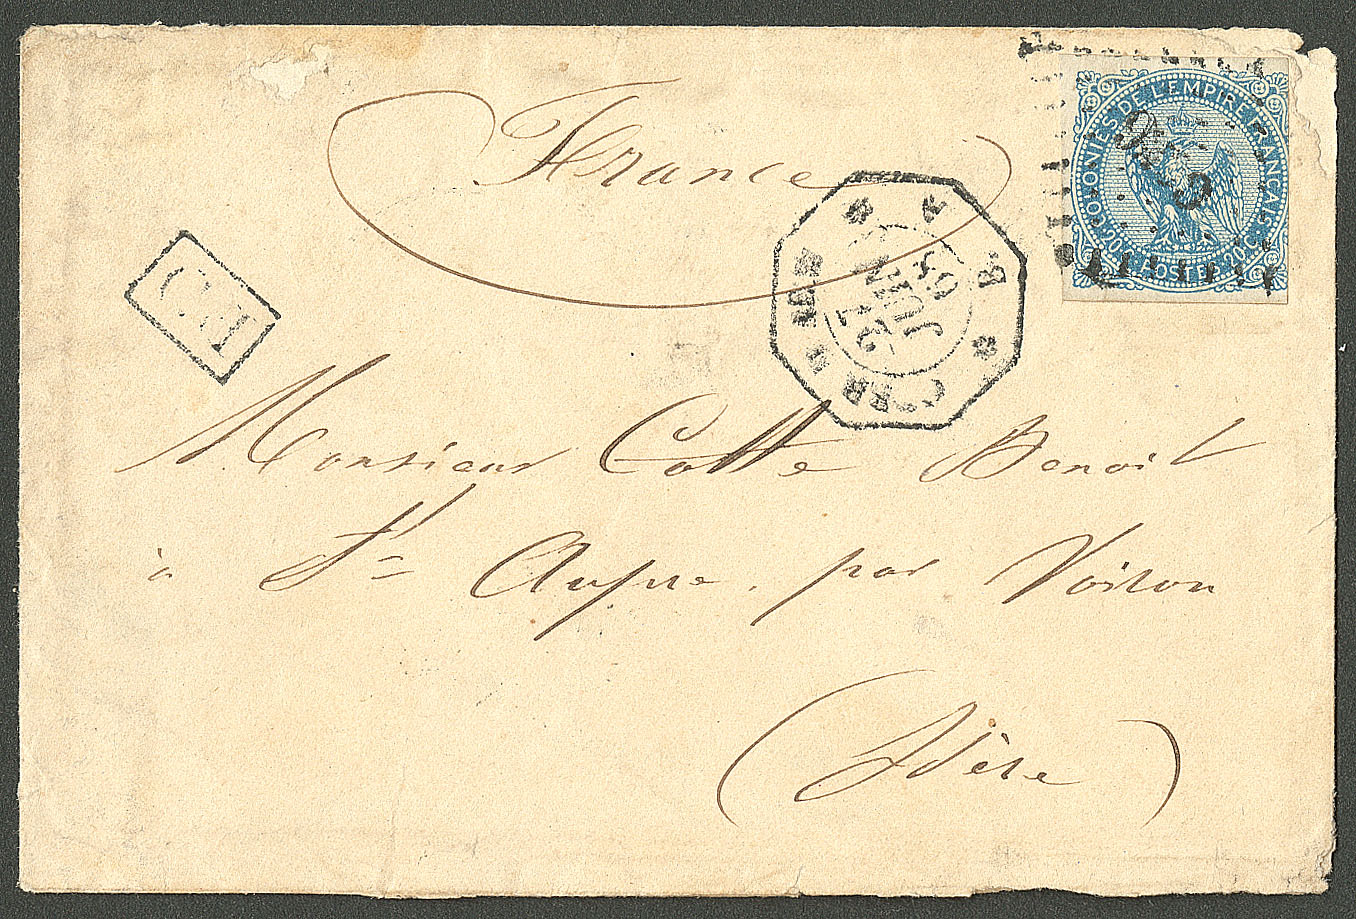 France
COLONIES DE L'EMPIRE FRANÇAIS
20C. POSTES. 20C.
CORR. D. ARM.
V. B.
21
JUIN
65
P.D
Monsieur Cotte Benoit
à St Aupre, par Voiron
(Isère)